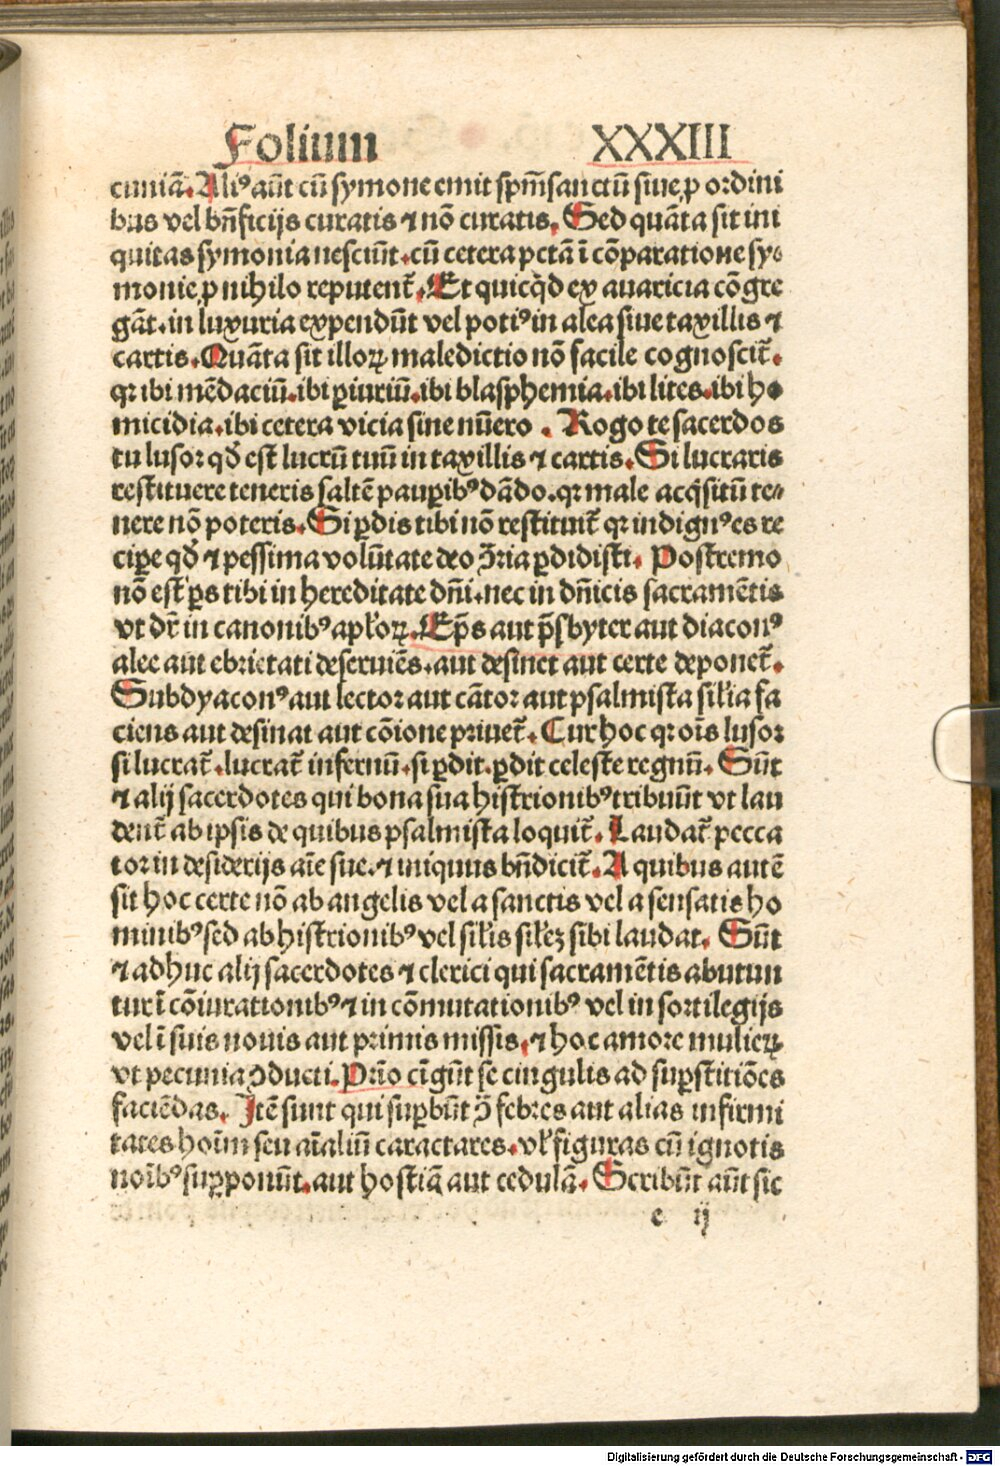 Folium XXXIII
cuniā. Ali⁹ aūt cū symone emit spm̄sanctū siue ꝓ ordini
bus vel bn̄ficijs curatis ⁊ nō curatis. Sed quāta sit ini
quitas symonia nesciūt. cū cetera pctā ī cōparatione sy⸗
monie ꝓ nihilo reputent᷑. Et quicq̄d ex auaricia cōgre
gāt. in luxuria expendūt vel poti⁹ in alea siue taxillis ⁊
cartis. Quāta sit illoꝝ maledictio nō facile cognoscit᷑.
qꝛ ibi mēdaciū. ibi ꝑiuriū. ibi blasphemia. ibi lites. ibi ho
micidia. ibi cetera vicia sine nūero. Rogo te sacerdos
tu lusor qđ est lucrū tuū in taxillis ⁊ cartis. Si lucraris
restituere teneris saltē pauꝑib⁹ dādo. qꝛ male acq̄situ te⸗
nere nō poteris. Si ꝑdis tibi nō restituit᷑ qꝛ indign⁹ es re
ciꝑe qđ ⁊ pessima volūtate deo ↄ̄ria ꝑdidisti. Postremo
nō est ꝑs tibi in hereditate dn̄i. nec in dn̄icis sacramētis
vt dr̄ in canonib⁹ apl̄oꝝ. Ep̄s aut p̄sbyter aut diacon⁹
alee aut ebrietati deseruiēs. aut desinet aut certe deponet᷑.
Subdyacon⁹ aut lector aut cātor aut psalmista sil̄ia fa
ciens aut desinat aut cōione priuet᷑. Cur hoc qꝛ oīs lusor
si lucrat᷑. lucrat᷑ infernū. si ꝑdit. ꝑdit celeste regnū. Sūt
⁊ alij sacerdotes qui bona sua histrionib⁹ tribuūt vt lau
dent᷑ ab ipsis de quibus psalmista loquit᷑. Laudat᷑ pecca
tor in desiderijs aīe sue. ⁊ iniquus bn̄dicit᷑. A quibus autē
sit hoc certe nō ab angelis vel a sanctis vel a sensatis ho
minib⁹ sed ab histrionib⁹ vel sil̄is sil̄eꝫ sibi laudat. Sūt
⁊ adhuc alij sacerdotes ⁊ clerici qui sacramētis abutun
tur ī cōiurationib⁹ ⁊ in cōmutationib⁹ vel in sortilegijs
vel ī suis nouis aut primis missis. ⁊ hoc amore mulieꝝ
vt pecunia ↄducti. Prīo cīgūt se cingulis ad suꝑstitiōes
faciēdas. Itē sunt qui suꝑbūt ↄ̄ febres aut alias infirmi
tates hoīm seu aīaliū caractares. vl̄ figuras cū ignotis
noīb⁹ suꝑponūt. aut hostiā aut cedulā. Scribūt aūt sic
e ij
Digitalisierung gefördert durch die Deutsche Forschungsgemeinschaft - DFG